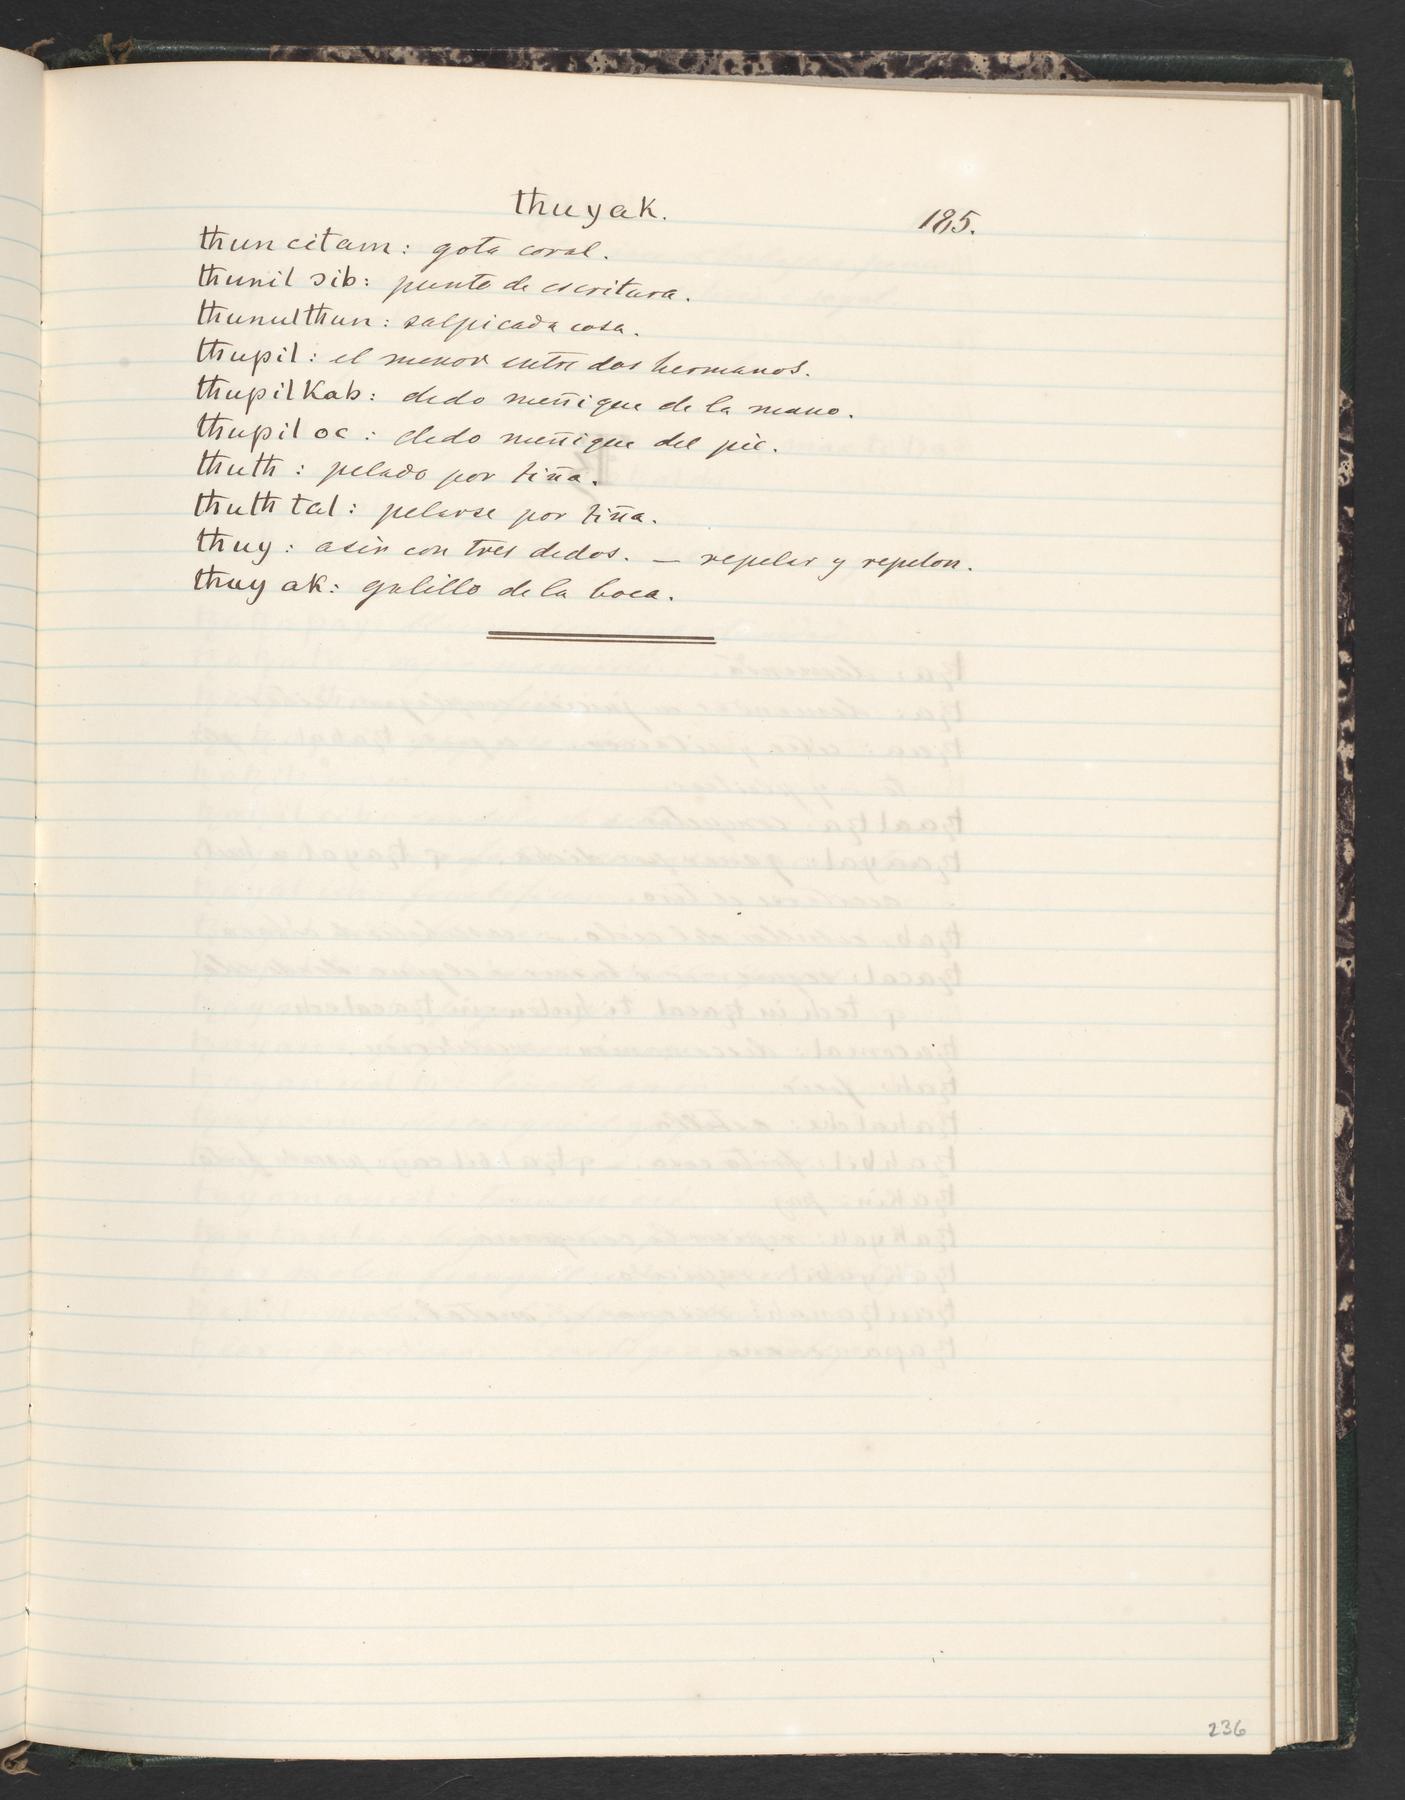 thuyak.
185.
thun citam: gota coral.
thunil ɔib: punto de escritura.
thunulthun: salpicada cosa.
thupil: el menor entre dos hermanos.
thupil Kab: dedo meñique de la mano.
thupil oc: dedo meñique del pié.
thuth: pelado por tiña.
thuthtal: pelarse por tiña.
thuy: asir con tres dedos. — repelar y repelon.
thuy ak: galillo de la boca.
236